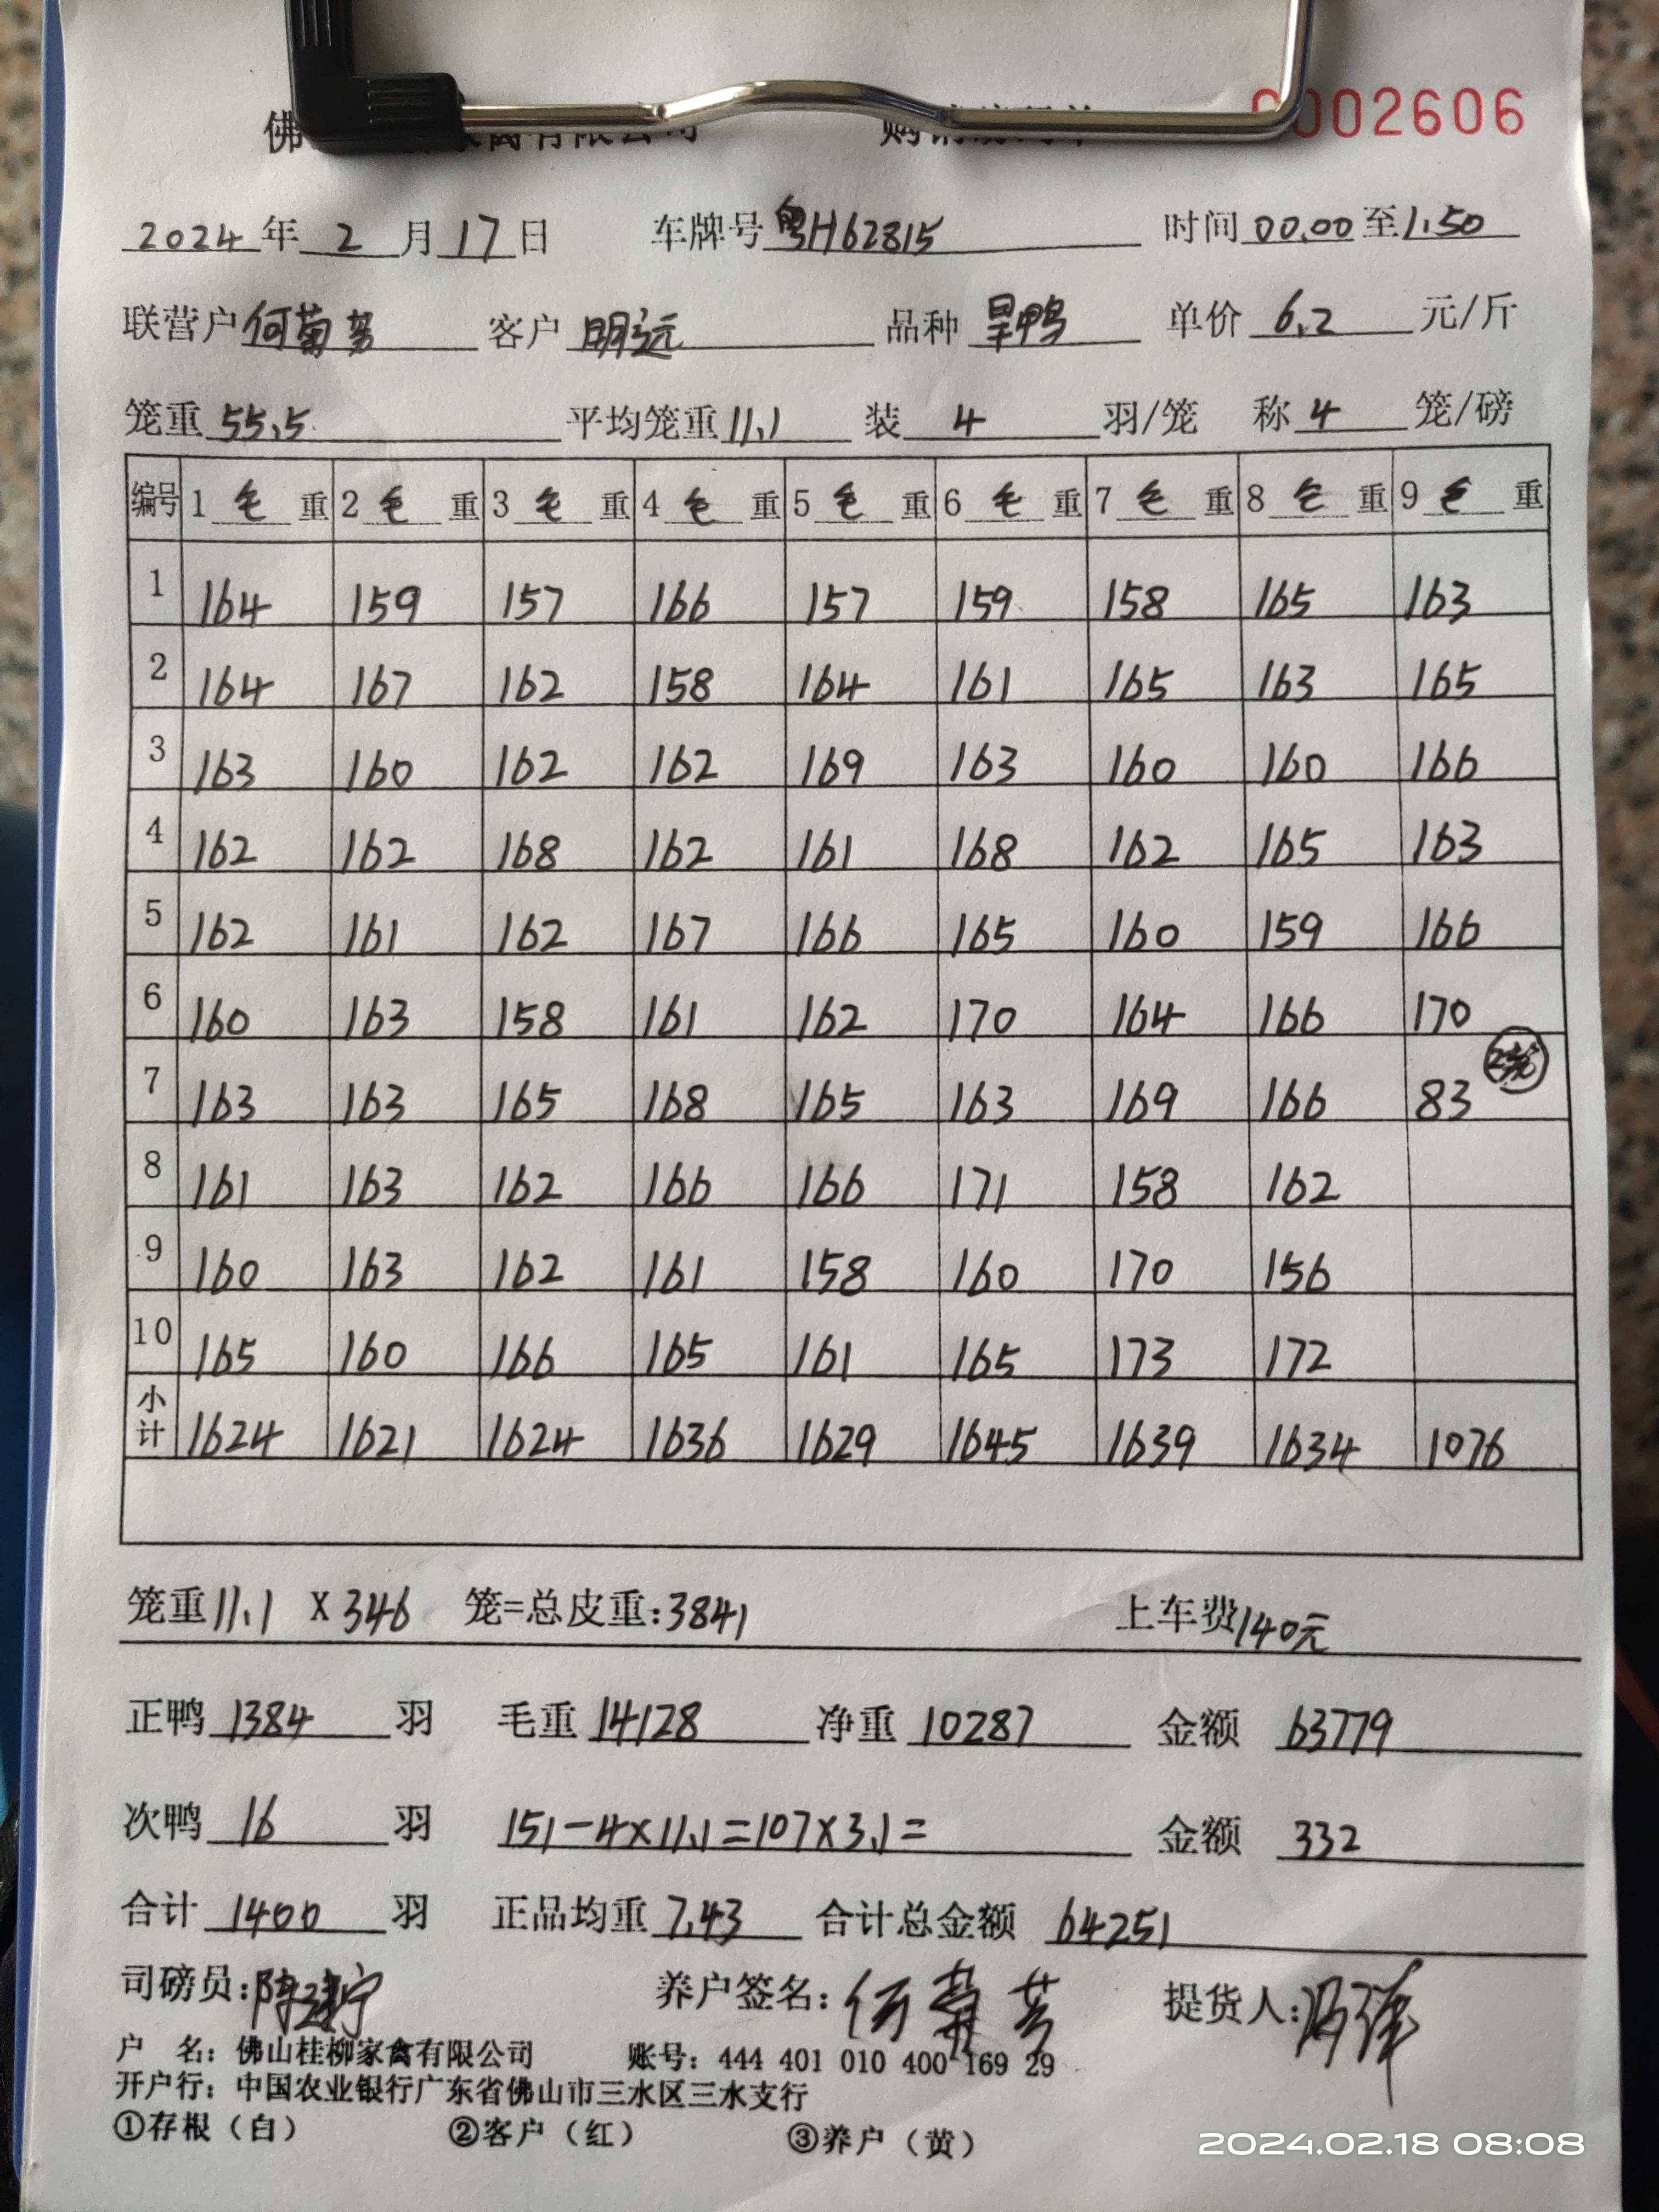 佛 禽有限公司 购销 0002606
2024 年 2 月 17 日 车牌号 粤H62815 时间 00.00 至 1.50
联营户 何菊芳 客户 明远 品种 旱鸭 单价 6.2 元/斤
笼重 55.5 平均笼重 11.1 装 4 羽/笼 称 4 笼/磅
编号 1 毛 重 2 毛 重 3 毛 重 4 毛 重 5 毛 重 6 毛 重 7 毛 重 8 毛 重 9 毛 重
1 164 159 157 166 157 159 158 165 163
2 164 167 162 158 164 161 165 163 165
3 163 160 162 162 169 163 160 160 166
4 162 162 168 162 161 168 162 165 163
5 162 161 162 167 166 165 160 159 166
6 160 163 158 161 162 170 164 166 170
7 163 163 165 168 165 163 169 166 83 2笼
8 161 163 162 166 166 171 158 162
9 160 163 162 161 158 160 170 156
10 165 160 166 165 161 165 173 172
小计 1624 1621 1624 1636 1629 1645 1639 1634 1076
笼重 11.1 X 346 笼=总皮重:3841 上车费 140元
正鸭 1384 羽 毛重 14128 净重 10287 金额 63779
次鸭 16 羽 151-4×11.1=107×3.1= 金额 332
合计 1400 羽 正品均重 7.43 合计总金额 64251
司磅员: 养户签名: 何菊芳 提货人:
户 名: 佛山桂柳家禽有限公司 账号: 444 401 010 400 169 29
开户行: 中国农业银行广东省佛山市三水区三水支行
①存根（白） ②客户（红） ③养户（黄）
2024.02.18 08:08